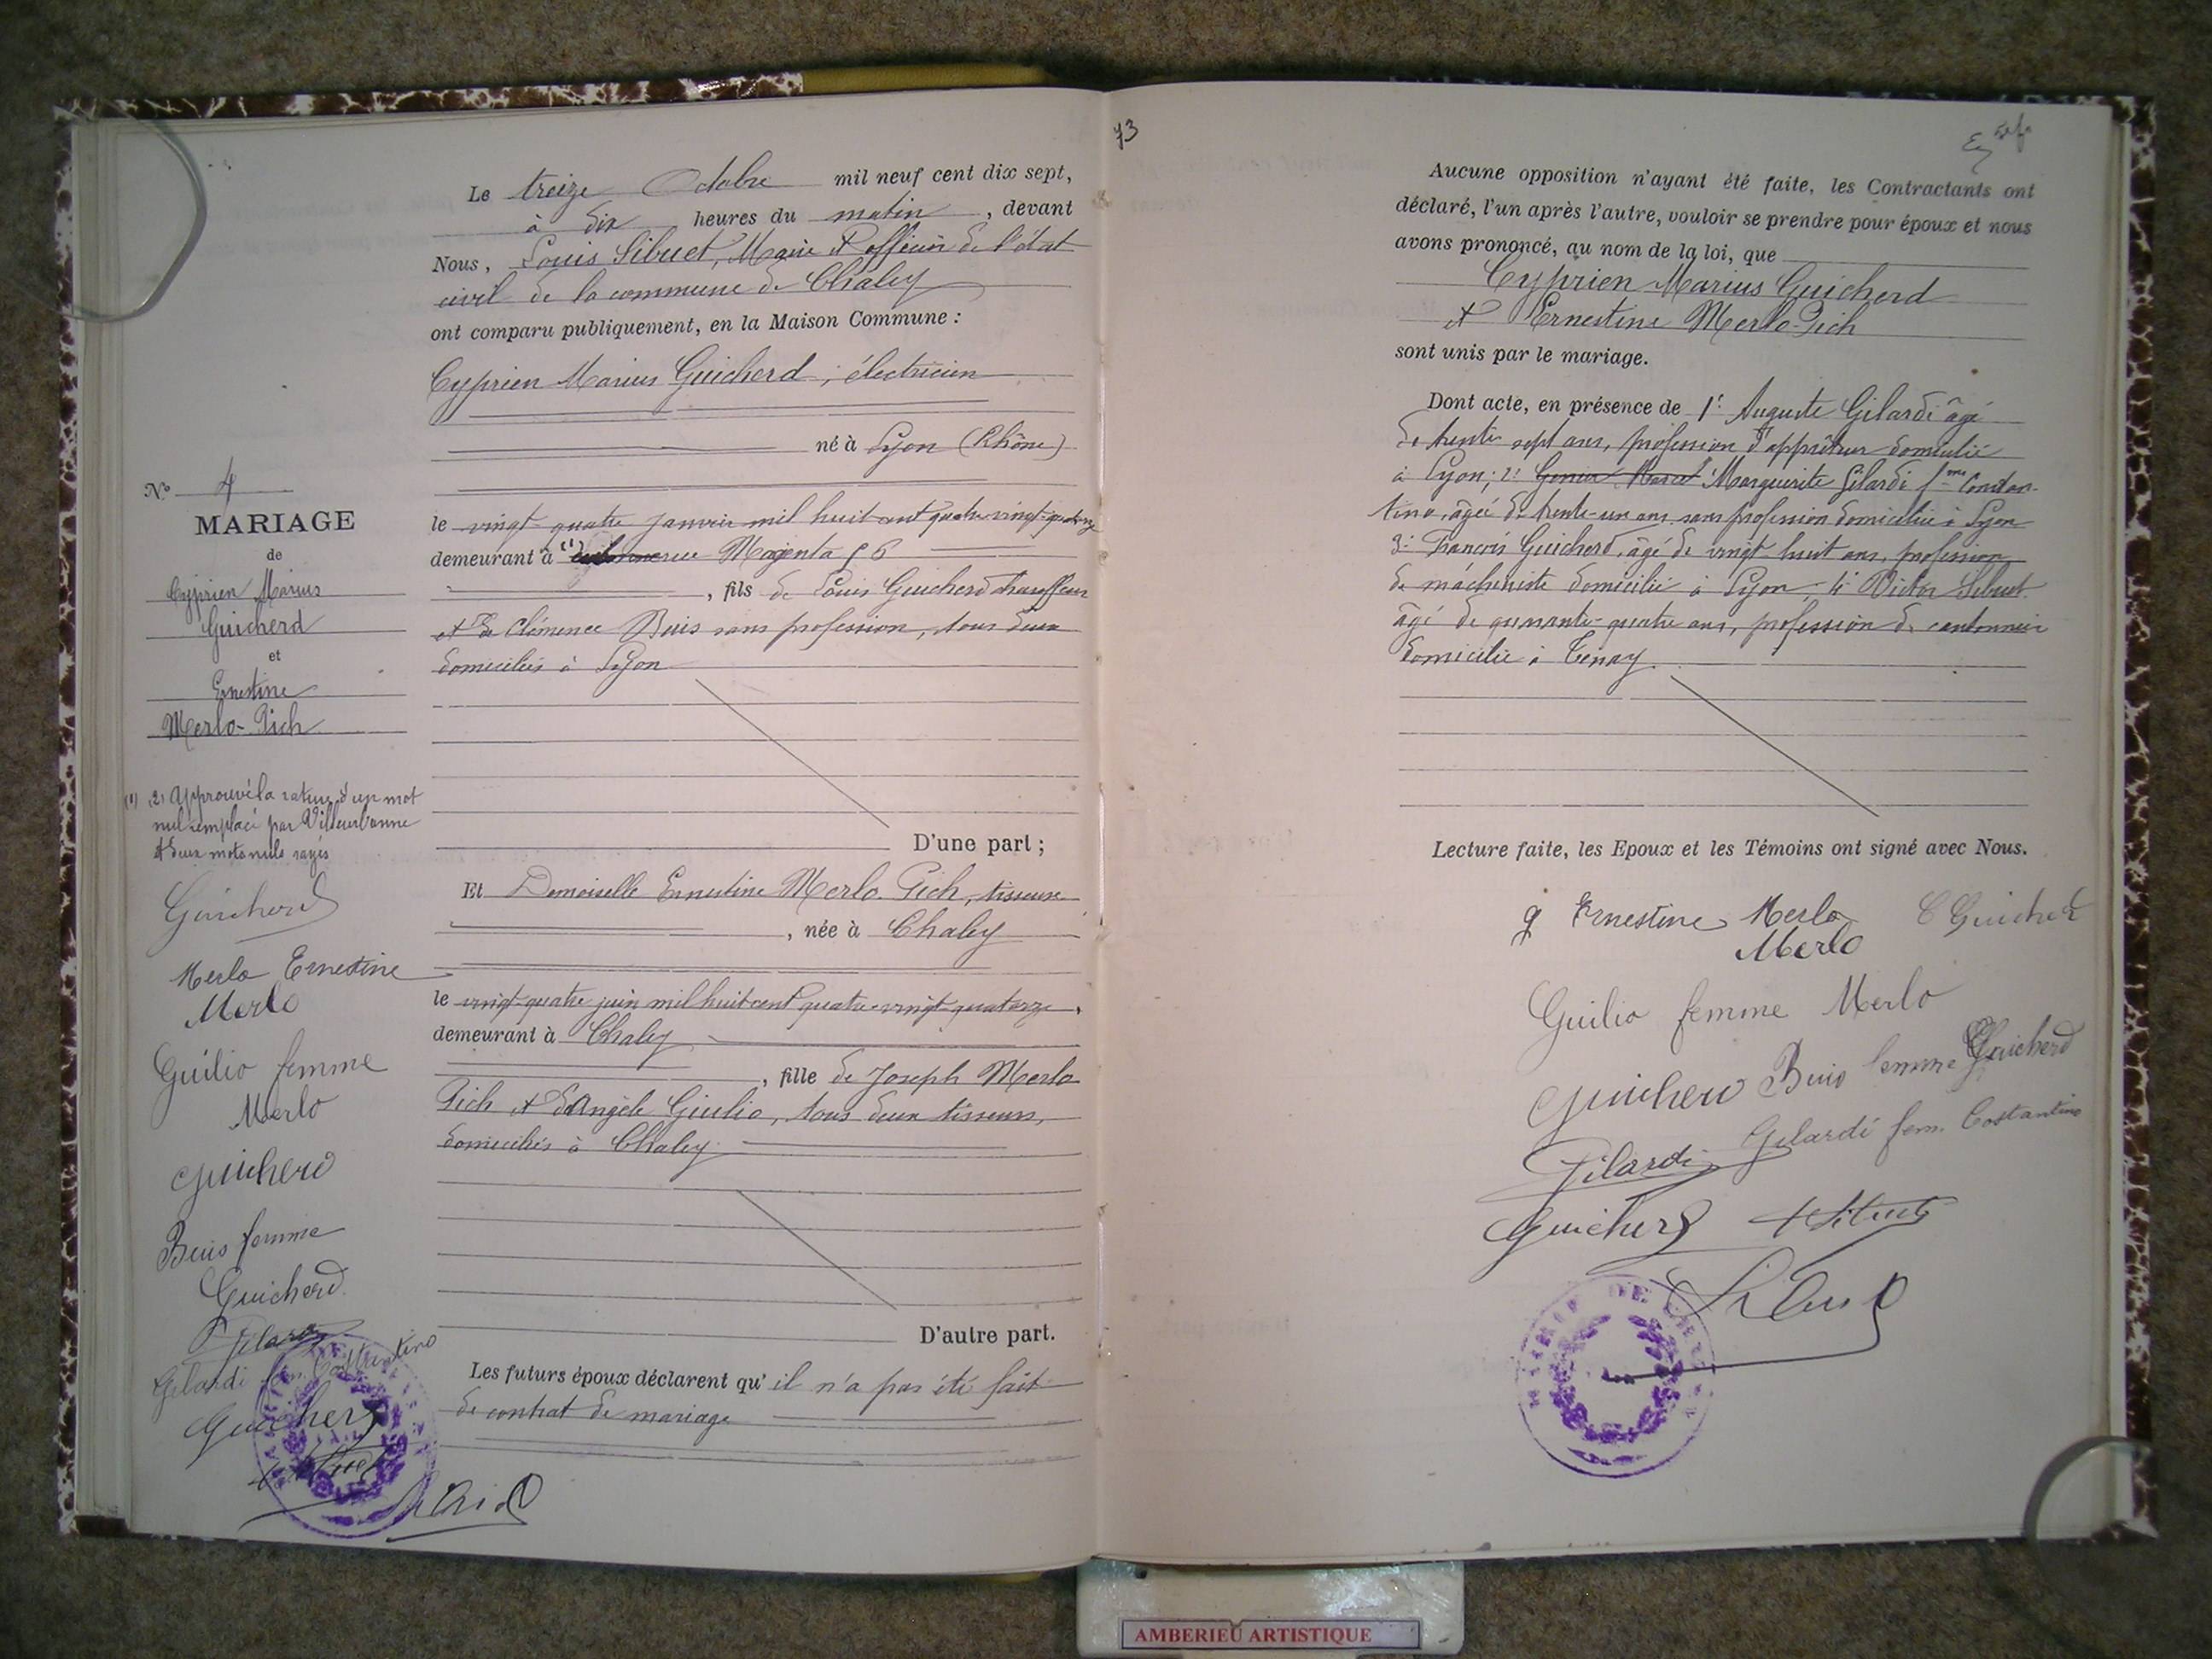 Le treize Octobre mil neuf cent dix sept,
à dix heures du matin, devant
Nous, Louis Sibuet, Maire & officier de l'état
civil de la commune de Chaley
ont comparu publiquement, en la Maison Commune :
Cyprien Marius Guicherd, électricien
né à Lyon (Rhône)
le vingt-quatre janvier mil huit cent quatre-vingt-quatorze
demeurant à (1) rue Magenta 56
, fils de Louis Guicherd chauffeur
& de Clémence Buis sans profession, tous deux
domiciliés à Lyon
D'une part ;
Et Demoiselle Ernestine Merlo-Pich, tisseuse
, née à Chaley
le vingt-quatre juin mil huit cent quatre-vingt-quatorze,
demeurant à Chaley
, fille de Joseph Merlo
Pich & d'Angèle Giulio, tous deux tisseurs,
domiciliés à Chaley.
D'autre part.
Les futurs époux déclarent qu'il n'a pas été fait
de contrat de mariage
N° 4
MARIAGE
de
Cyprien Marius
Guicherd
et
Ernestine
Merlo-Pich
(1) (2) Approuvé la rature d'un mot
nul remplacé par Villeurbanne
& deux mots nuls rayés
Guicherd
Merlo Ernestine
Merlo
Guilio femme
Merlo
Guicherd
Buis femme
Guicherd
Gilardi
Gilardi fem. Costantino
Guicherd
Sibuet
73
Aucune opposition n'ayant été faite, les Contractants ont
déclaré, l'un après l'autre, vouloir se prendre pour époux et nous
avons prononcé, au nom de la loi, que
Cyprien Marius Guicherd
& Ernestine Merlo-Pich
sont unis par le mariage.
Dont acte, en présence de 1° Auguste Gilardi âgé
de trente sept ans, profession d'apprêteur domicilié
à Lyon; 2° Marguerite Gilardi fme Constan-
tino, âgée de trente-un ans, sans profession domiciliée à Lyon
3° François Guicherd, âgé de vingt huit ans, profession
de machiniste domicilié à Lyon, 4° Victor Sibuet
âgé de quarante-quatre ans, profession de cantonnier
domicilié à Tenay.
Lecture faite, les Epoux et les Témoins ont signé avec Nous.
Ernestine Merlo C Guicherd
Merlo
Guilio femme Merlo
Guicherd Buis femme Guicherd
Gilardi fem. Costantino
Gilardi
Guicherd Sibuet
Sibuet
MAIRIE DE
AMBERIEU ARTISTIQUE